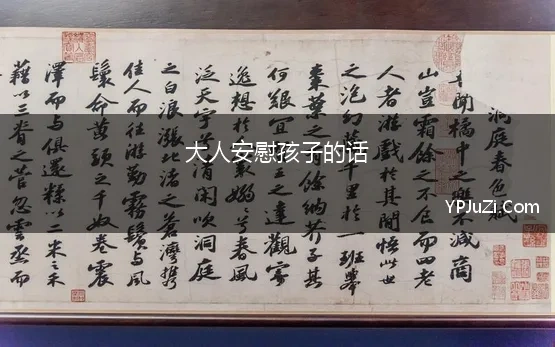 洞庭春色賦
聞橘中之樂不減商
山豈霜餘之不食而四老
人者游戲於其間悟此世
之泡幻藏千里於一班舉
棗葉之有餘納芥子其
何艱宜王之達觀寄
逸想於寰嫋嫋兮春風
泛天宇兮清閑吹洞庭
之白浪漲北渚之蒼灣攜
佳人而往游勤霧鬢與風
鬟命黃頭之千奴卷震
澤而與俱還糅以二米之禾
藉以三脊之菅忽雲烝而
大人安慰孩子的话
YPJuZi.Com